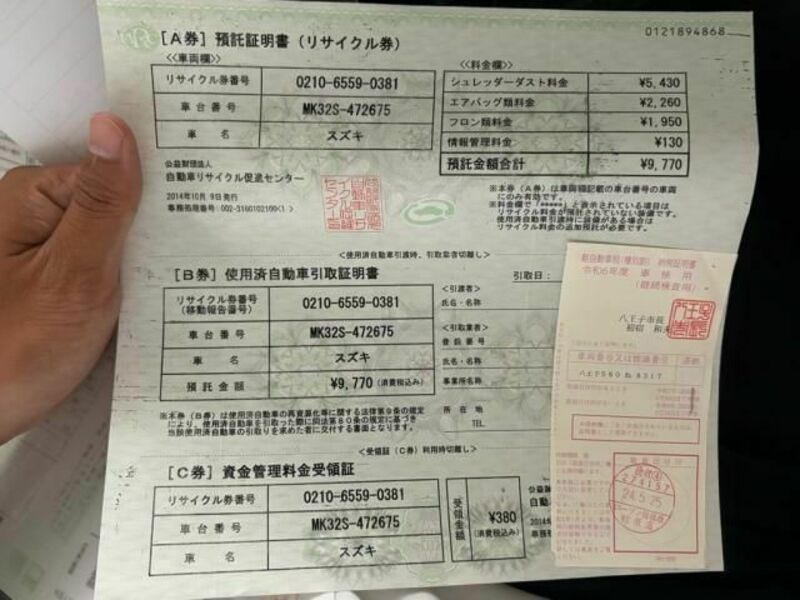 0121894868
[A券] 預託証明書 (リサイクル券)
<<車両欄>>
リサイクル券番号 0210-6559-0381
車台番号 MK32S-472675
車名 スズキ
<<料金欄>>
シュレッダーダスト料金 ¥5,430
エアバッグ類料金 ¥2,260
フロン類料金 ¥1,950
情報管理料金 ¥130
預託金額合計 ¥9,770
公益財団法人
自動車リサイクル促進センター
2014年10月 9日発行
※本券(A券)は車両欄記載の車台番号の車両
にのみ有効です。
※料金欄で「*****」と表示されている項目は
リサイクル料金が預託されていない装備です。
使用済自動車引渡時に装備がある場合は
リサイクル料金の追加預託が必要です。
<使用済自動車引渡時、引取業者切離し>
[B券] 使用済自動車引取証明書
引取日:
リサイクル券番号
(移動報告番号) 0210-6559-0381
車台番号 MK32S-472675
車名 スズキ
預託金額 ¥9,770 (消費税込み)
<引渡者>
氏名・名称
<引取業者>
登録番号
氏名・名称
事業所名称
所在地
TEL
※本券(B券)は使用済自動車の再資源化等に関する法律第9条の規定
により、使用済自動車を引取った際に同法第80条の規定に基づき
当該使用済自動車の引取りを求めた者に交付する書面となります。
<受領証(C券)利用時切離し>
[C券] 資金管理料金受領証
リサイクル券番号 0210-6559-0381
車台番号 MK32S-472675
車名 スズキ
受領金額 ¥380
(消費税込み)
軽自動車税(種別割) 納税証明書
令和6年度 車検用
(継続検査用)
八王子市長
車両番号又は標識番号
24.5.25